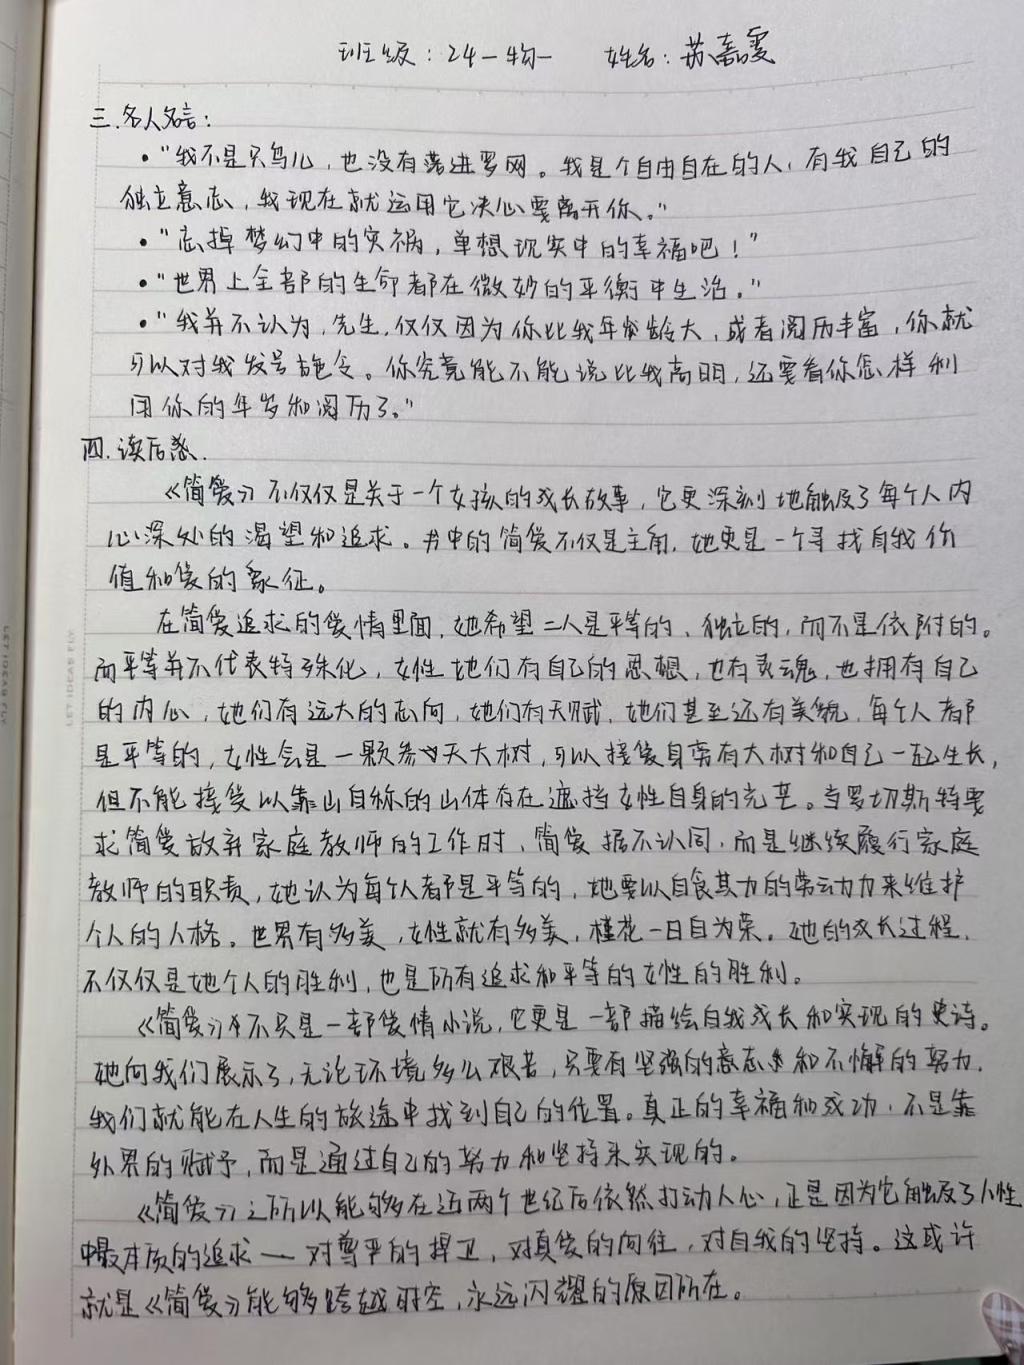 班级：24一物一 姓名：苏嘉雯
三.名人名言：
•“我不是只鸟儿，也没有落进罗网。我是个自由自在的人，有我自己的
独立意志，我现在就运用它决心要离开你。”
•“忘掉梦幻中的灾祸，单想现实中的幸福吧！”
•“世界上全部的生命都在微妙的平衡中生活。”
•“我并不认为，先生，仅仅因为你比我年龄大，或者阅历丰富，你就
可以对我发号施令。你究竟能不能说比我高明，还要看你怎样利
用你的年岁和阅历了。”
四.读后感.
《简爱》不仅仅是关于一个女孩的成长故事，它更深刻地触及了每个人内
心深处的渴望和追求。书中的简爱不仅是主角，她更是一个寻找自我价
值和爱的象征。
在简爱追求的爱情里面，她希望二人是平等的、独立的，而不是依附的。
而平等并不代表特殊化，女性她们有自己的思想，也有灵魂，也拥有自己
的内心，她们有远大的志向，她们有天赋，她们甚至还有美貌，每个人都
是平等的，女性会是一颗参天大树，可以接受身旁有大树和自己一起生长，
但不能接受以靠山自称的山体存在遮挡女性自身的光芒。当罗切斯特要
求简爱放弃家庭教师的工作时，简爱据不认同，而是继续履行家庭
教师的职责，她认为每个人都是平等的，她要以自食其力的劳动力来维护
个人的人格。世界有多美，女性就有多美，槿花一日自为荣。她的成长过程，
不仅仅是她个人的胜利，也是所有追求和平等的女性的胜利。
《简爱》不只是一部爱情小说，它更是一部描绘自我成长和实现的史诗。
她向我们展示了，无论环境多么艰苦，只要有坚强的意志和不懈的努力，
我们就能在人生的旅途中找到自己的位置。真正的幸福和成功，不是靠
外界的赋予，而是通过自己的努力和坚持来实现的。
《简爱》之所以能够在近两个世纪后依然打动人心，正是因为它触及了人性
中最本质的追求——对尊严的捍卫，对真爱的向往，对自我的坚持。这或许
就是《简爱》能够跨越时空，永远闪耀的原因所在。
LET IDEAS FLY
LET IDEAS FLY